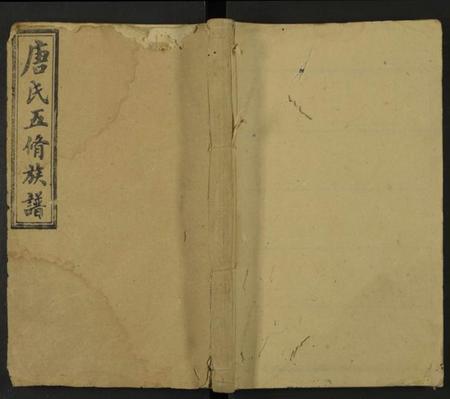 唐氏五脩族譜